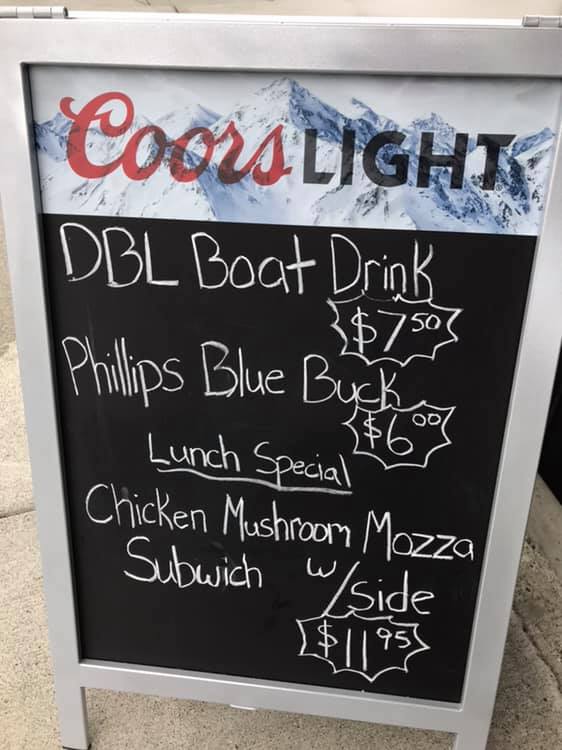 Coors LIGHT
DBL Boat Drink
$7 50
Phillips Blue Buck
$6 00
Lunch Special
Chicken Mushroom Mozza
Subwich w/side
$11 95